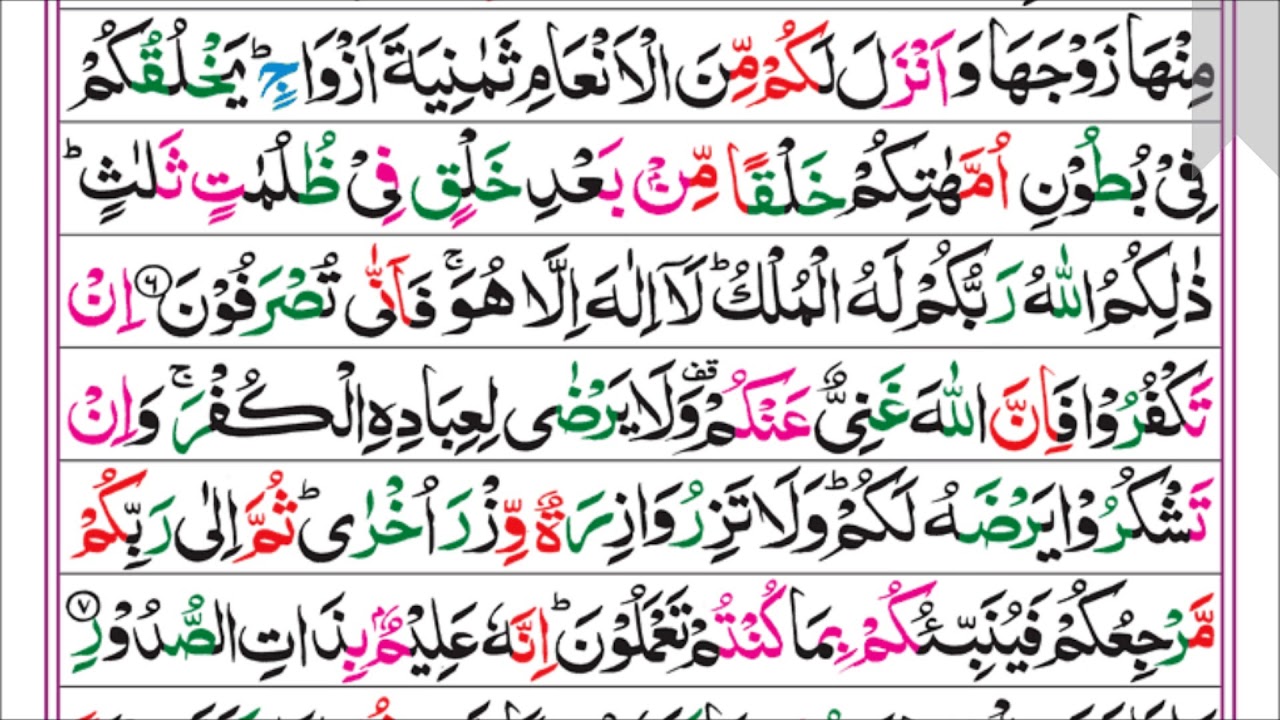 مِنْهَا زَوْجَهَا وَ اَنْزَلَ لَكُمْ مِّنَ الْاَنْعَامِ ثَمٰنِيَةَ اَزْوَاجٍ ؕ يَخْلُقُكُمْ
فِيْ بُطُوْنِ اُمَّهٰتِكُمْ خَلْقًا مِّنْۢ بَعْدِ خَلْقٍ فِيْ ظُلُمٰتٍ ثَلٰثٍ ؕ
ذٰلِكُمُ اللّٰهُ رَبُّكُمْ لَهُ الْمُلْكُ ؕ لَاۤ اِلٰهَ اِلَّا هُوَ ۚ فَاَنّٰى تُصْرَفُوْنَ ۶ اِنْ
تَكْفُرُوْا فَاِنَّ اللّٰهَ غَنِيٌّ عَنْكُمْ قف وَلَا يَرْضٰى لِعِبَادِهِ الْكُفْرَ ۚ وَاِنْ
تَشْكُرُوْا يَرْضَهُ لَكُمْ ؕ وَلَا تَزِرُ وَازِرَةٌ وِّزْرَ اُخْرٰى ؕ ثُمَّ اِلٰى رَبِّكُمْ
مَّرْجِعُكُمْ فَيُنَبِّئُكُمْ بِمَا كُنْتُمْ تَعْمَلُوْنَ ؕ اِنَّهٗ عَلِيْمٌۢ بِذَاتِ الصُّدُوْرِ ۷